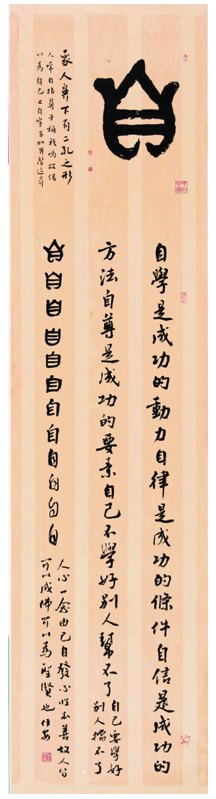 自
象人鼻下有二孔之形
人常自指鼻子稱我故借
以為自己之自字加畀聲造鼻
自學是成功的動力自律是成功的條件自信是成功的
方法自尊是成功的要素自己不學好別人幫不了
自己要學好
別人擋不了
自自自自自自自自自自自自
人心一念由己自發心性本善故人皆
可以成佛可以為聖賢也